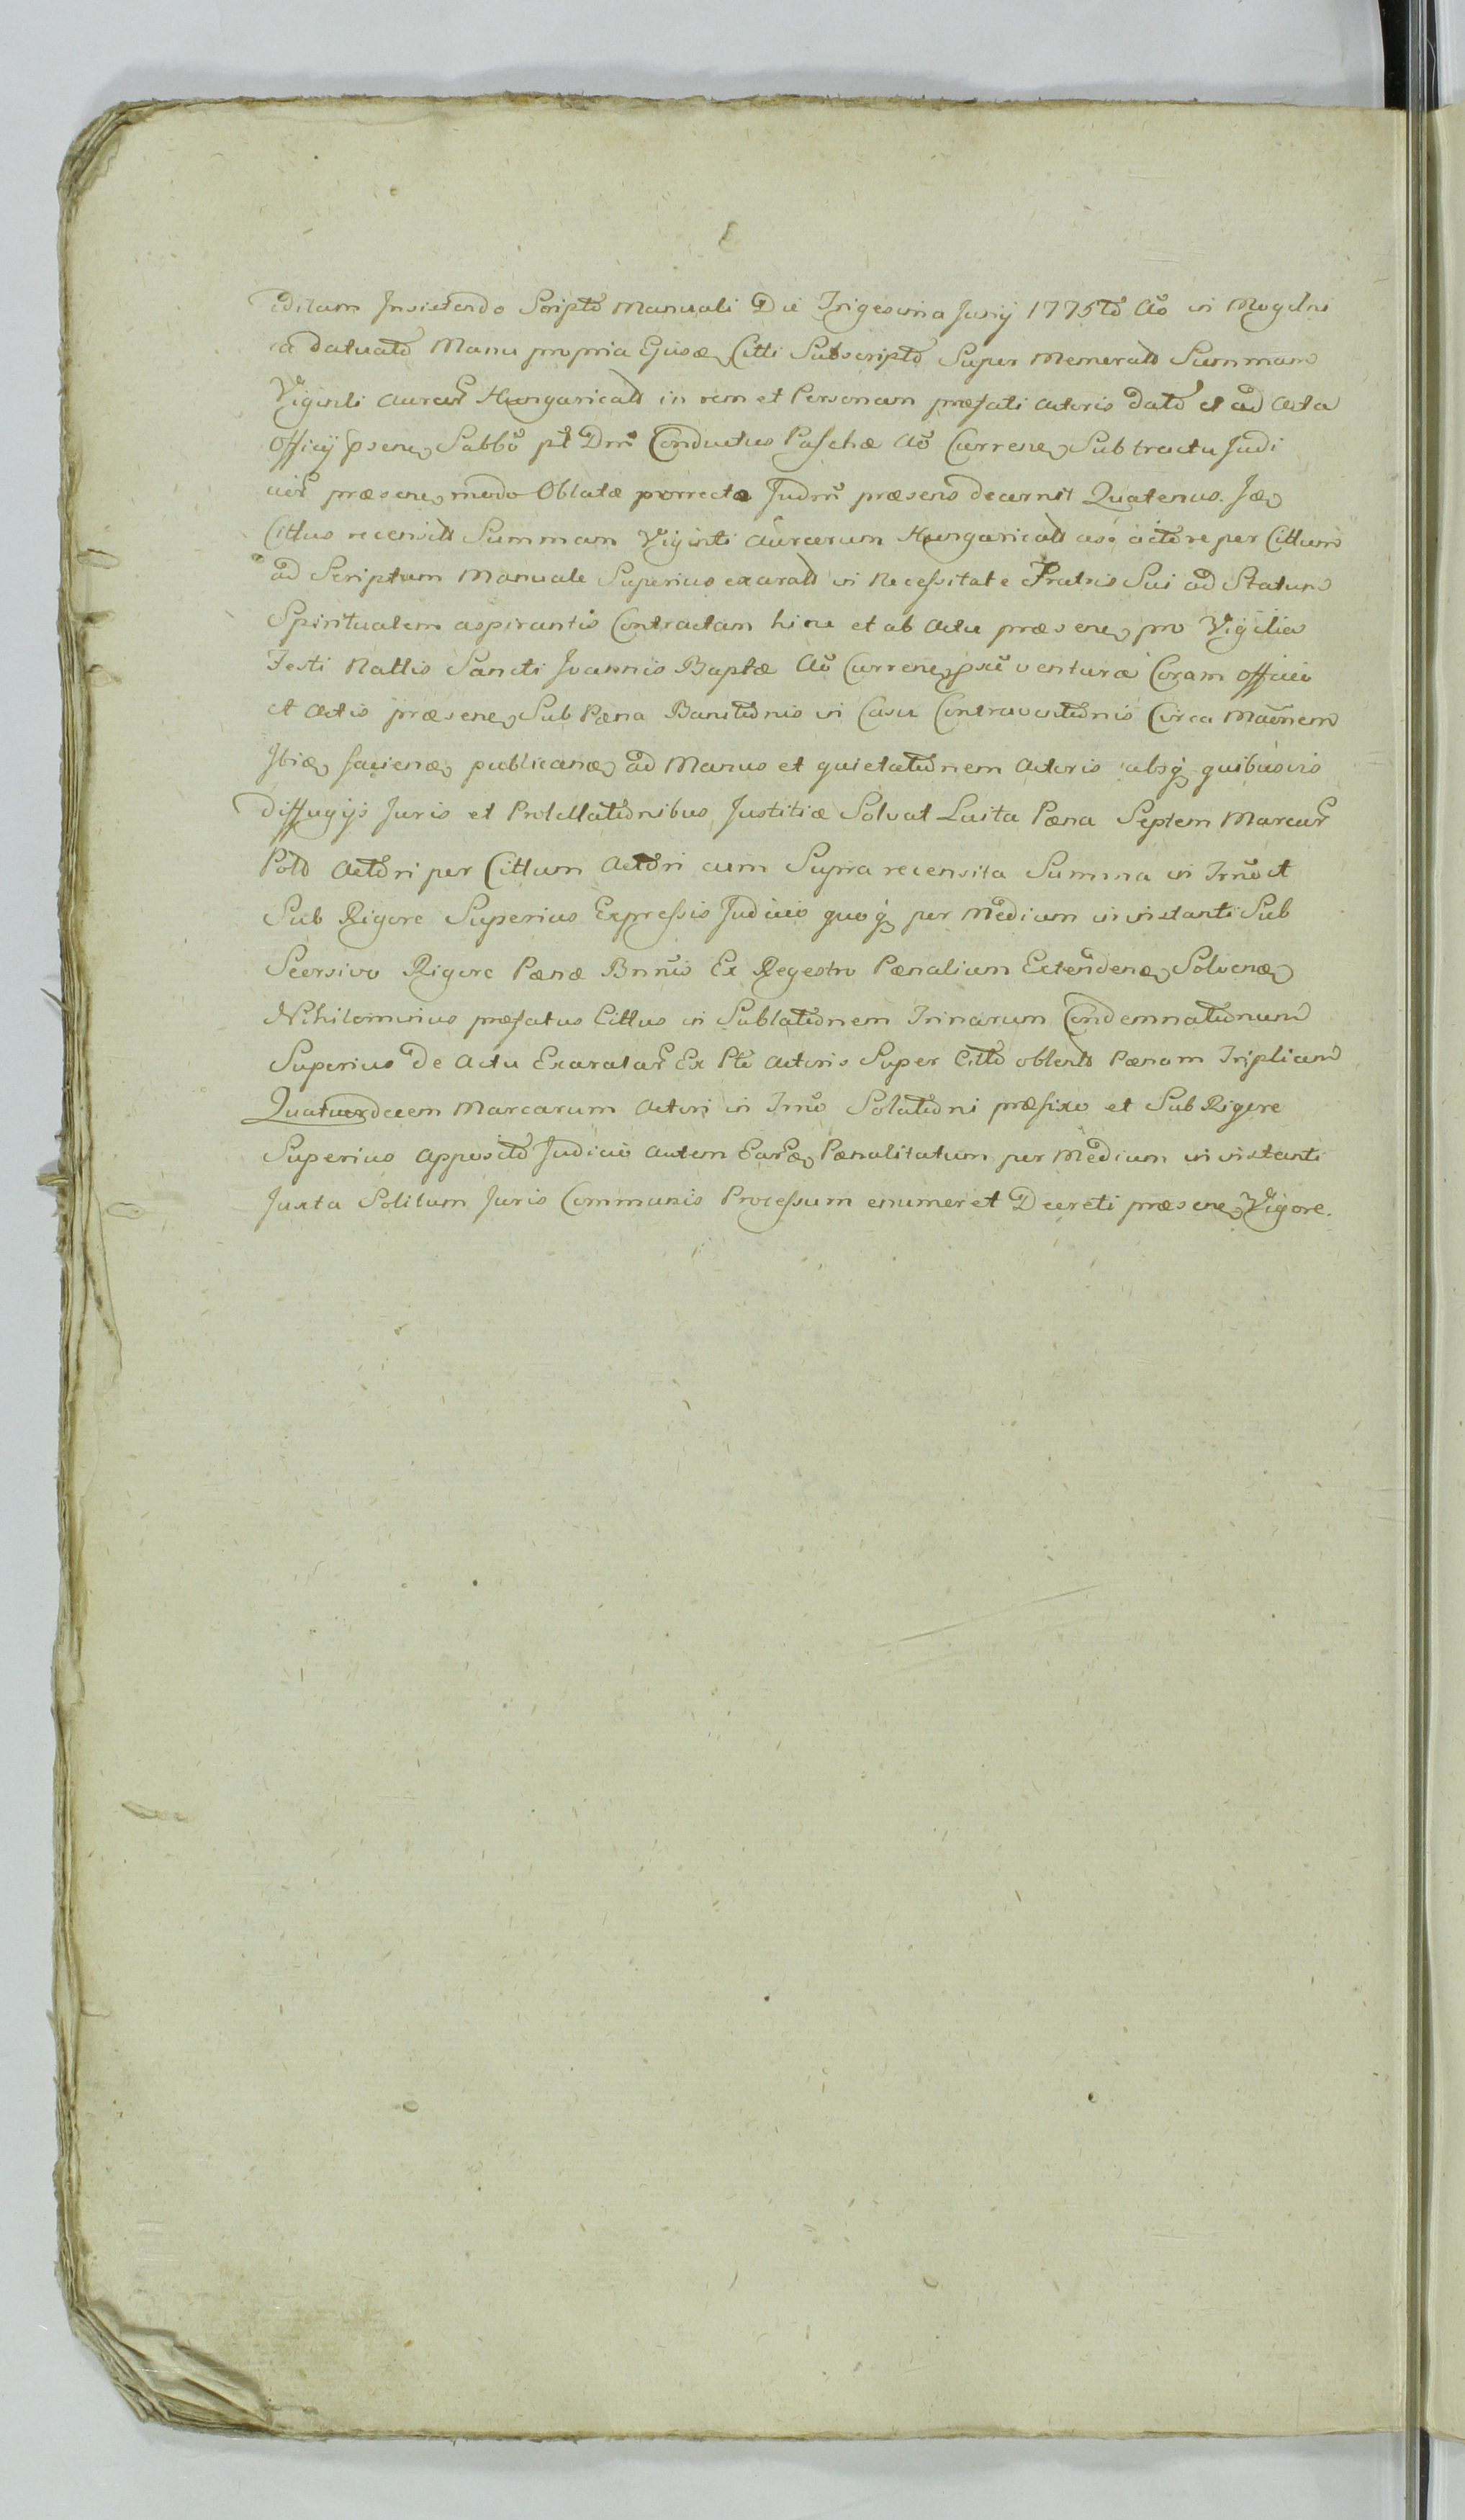 ditam Insistendo Scripto Manuali Die Trigesima Junij 1775to Ao in Mogelni
ca datuato Manu propria Ejusdem Citti Subscripto Super Memerato Summam
Viginti Aureor Hungarical in rem et Personam præfati Actoris dato et ad Acta
Officij psene Sabbo pt Dm Conductus Paschæ Ao Currene Sub tractu Judi
cior præsene modo Oblatæ porrectæ Judm præsens decernit Quatenus Idem
Cittus recensitt Summam Viginti Aureorum Hungarical actore per Cittum
ad Scriptum Manuale Superius exarat in Necessitate Fratris Sui ad Statum
Spiritualem aspirantis Contractam hinc et ab Actu præsene pro Vigilia
Festi Nattis Sancti Joannis Baptæ Ao Currene pxe ventura Coram Officio
et Actis præsene Sub Pæna Banitionis in Casu Contraventionis Circa Maonem
Ibidem faciend publicand ad Manus et quietationem Actoris absq quibusvis
diffugijs Juris et Protellationibus Justitiæ Solvat Luita Pæna Septem Marcar
Pold Actori per Cittum Actori cum Supra recensita Summa in Trno et
Sub Rigore Superius Expressis Judicio quoq per Medium in instanti Sub
Seorsivo Rigore Pænæ Bnnis Ex Regestro Pænalium Extendend Solvend
Nihilominus præfatus Cittus in Sublationem Trinarum Condemnationum
Superius de Actu Exaratar Ex Pte Actoris Super Citto obtent Pænam Triplicem
Quatuordecem Marcarum Actori in Trno Solutioni præfixo et Sub Rigore
Superius Apposito Judicio autem Earund Pænalitatum per Medium in instanti
Juxta Solitum Juris Communis Processum enumeret Decreti præsene Vigore.